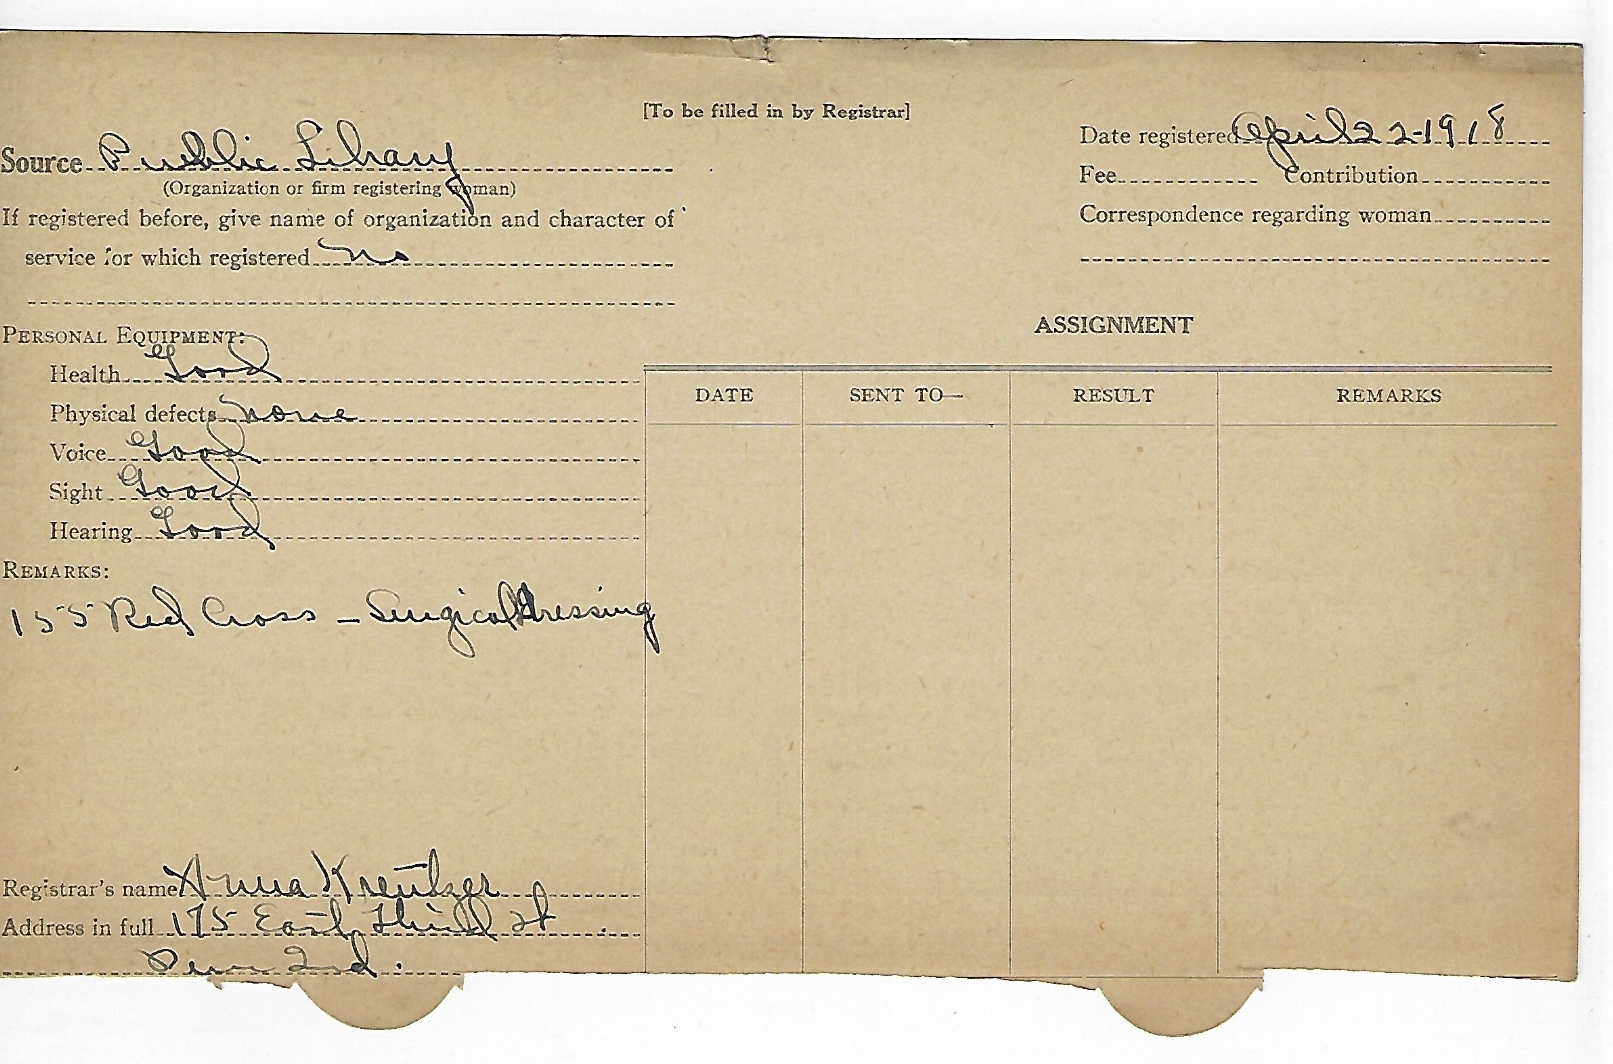 [To be filled in by Registrar]
Source Public Library
(Organization or firm registering woman)
If registered before, give name of organization and character of
service for which registered no
Date registered April 22-1918
Fee Contribution
Correspondence regarding woman
PERSONAL EQUIPMENT:
Health Good
Physical defects none
Voice Good
Sight Good
Hearing Good
REMARKS:
155 Red Cross - Surgical Dressing
ASSIGNMENT
DATE SENT TO— RESULT REMARKS
Registrar's name Anna Kreutzer
Address in full 175 East Third St
Peru Ind.